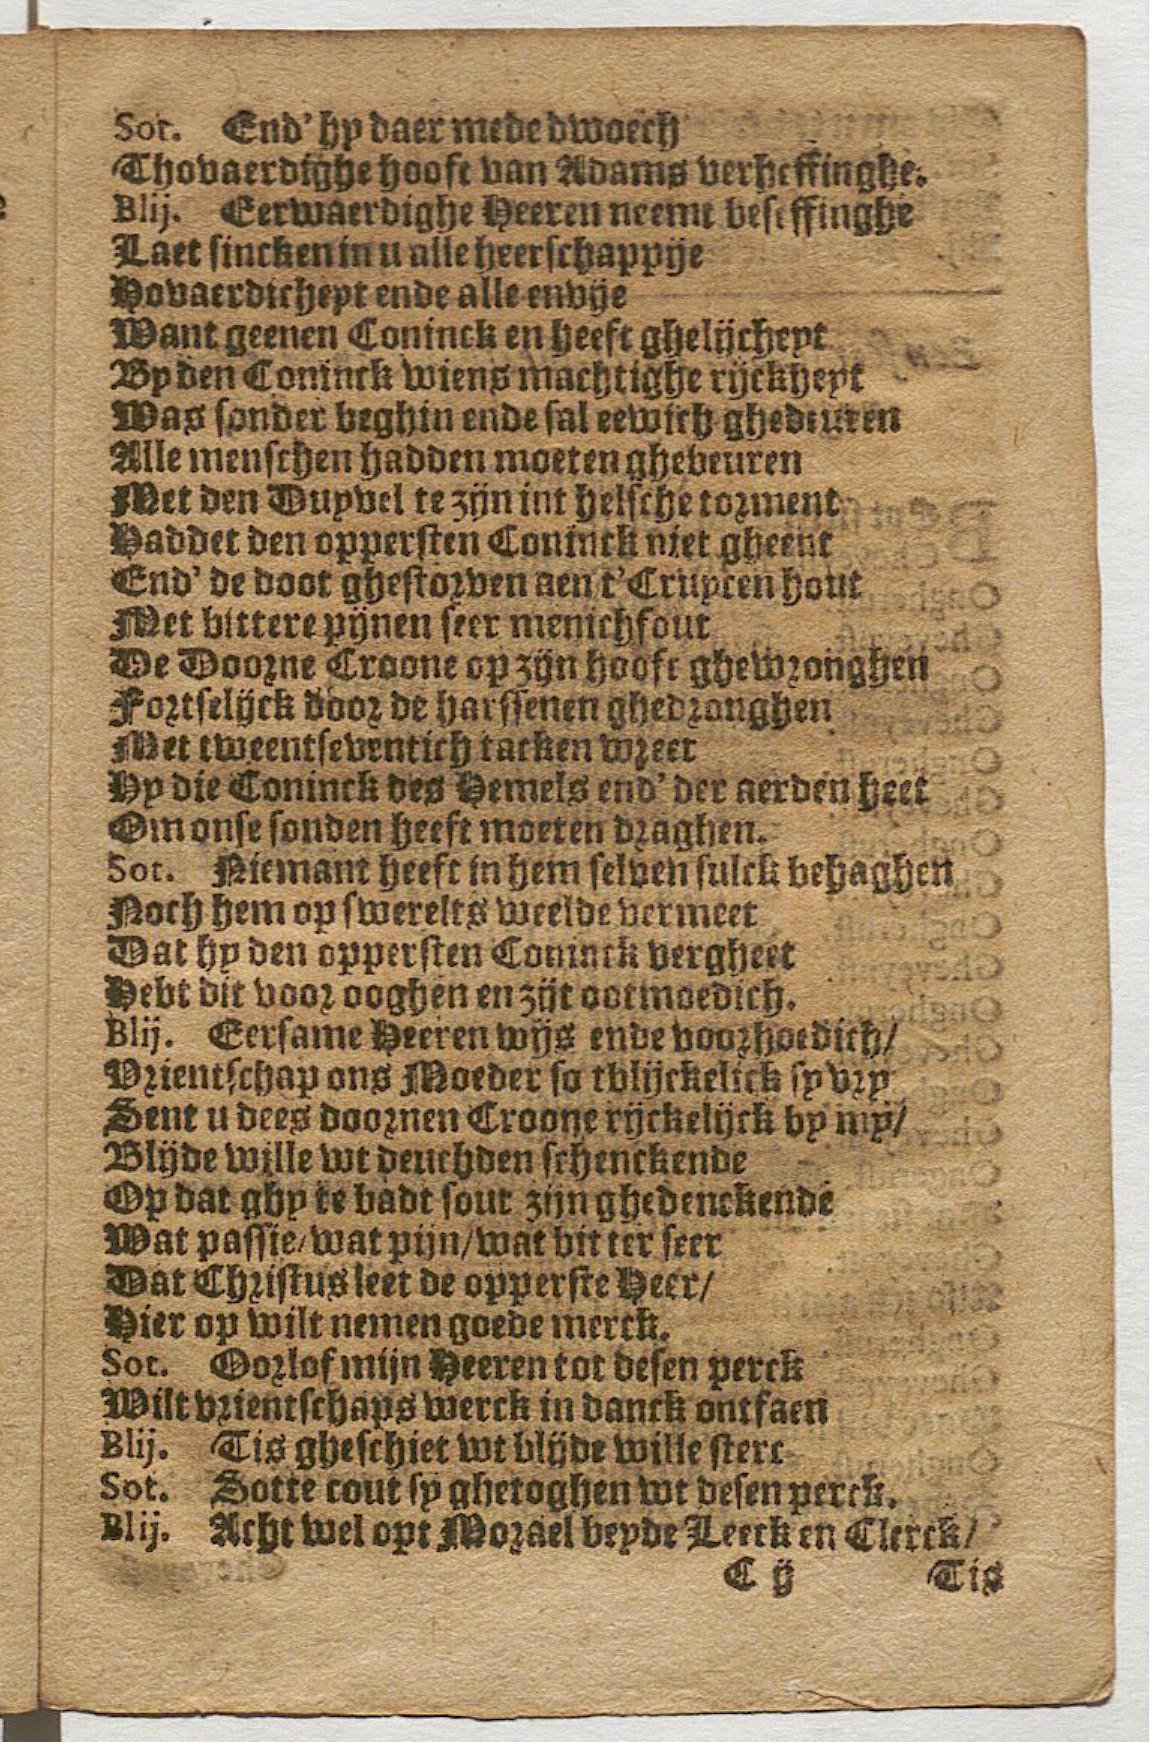 Sot. End' hy daer mede dwoech
Thovaerdighe hooft van Adams verheffinghe.
Blij. Eerwaerdighe Heeren neemt beseffinghe
Laet sincken in u alle heerschappije
Hovaerdicheyt ende alle envije
Want geenen Coninck en heeft ghelijcheyt
By den Coninck wiens machtighe rijckheyt
Was sonder beghin ende sal eewich ghedeuren
Alle menschen hadden moeten ghebeuren
Met den Duyvel te zijn int helsche torment
Haddet den oppersten Coninck niet gheent
End' de doot ghestorven aen t'Cruycen hout
Met bittere pijnen seer menichfout
De Doorne Croone op zijn hooft ghewronghen
Fortselijck door de harssenen ghedronghen
Met tweentseventich tacken wreet
Hy die Coninck des Hemels end' der aerden heet
Om onse sonden heeft moeten draghen.
Sot. Niemant heeft in hem selven sulck behaghen
Noch hem op swerelts weelde vermeet
Dat hy den oppersten Coninck vergheet
Hebt dit voor ooghen en zijt ootmoedich.
Blij. Eersame Heeren wijs ende voorhoedich/
Vrientschap ons Moeder so tblijckelick sy vry
Sent u dees doornen Croone rijckelijck by my/
Blijde wille wt deuchden schenckende
Op dat ghy te badt sout zijn ghedenckende
Wat passie/wat pijn/wat bitter seer
Dat Christus leet de opperste Heer/
Hier op wilt nemen goede merck.
Sot. Oorlof mijn Heeren tot desen perck
Wilt vrientschaps werck in danck ontfaen
Blij. Tis gheschiet wt blijde wille sterc
Sot. Sotte cout sy ghetoghen wt desen perck.
Blij. Acht wel opt Morael beyde Leeck en Clerck/
C ij Tis